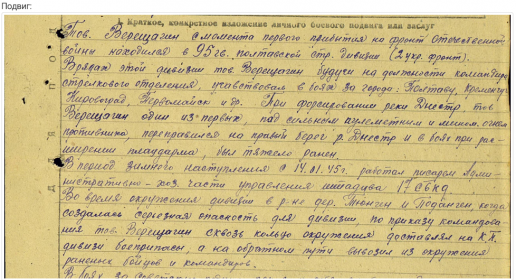 Подвиг:
I. Краткое, конкретное изложение личного боевого подвига или заслуг
Тов. Верещагин с момента первого прибытия на фронт Отечественной
войны находился в 95 гв. полтавской стр. дивизии (2 укр. фронт).
В рядах этой дивизии тов. Верещагин будучи на должности командира
стрелкового отделения, участвовал в боях за города: Полтаву, Кременчуг
Кировоград, Первомайск и др. При форсировании реки Днестр, тов.
Верещагин один из первых, под сильным пулеметным и мином. огнем
противника, переправился на правый берег р. Днестр и в боях при рас-
ширении плацдарма, был тяжело ранен.
В период зимнего наступления с 14.01.45г. работал писарем Адми-
нистративно-хоз. части управления штадива 17 СВКД
Во время окружения дивизии в р-не дер. и Поданген, когда
создалась серьезная опасность для дивизии, по приказу командова
ния тов. Верещагин сквозь кольцо окружения доставлял на К.П.
дивизи боеприпасы, а на обратном пути вывозил из окружения
раненых бойцов и командиров.
В боях за